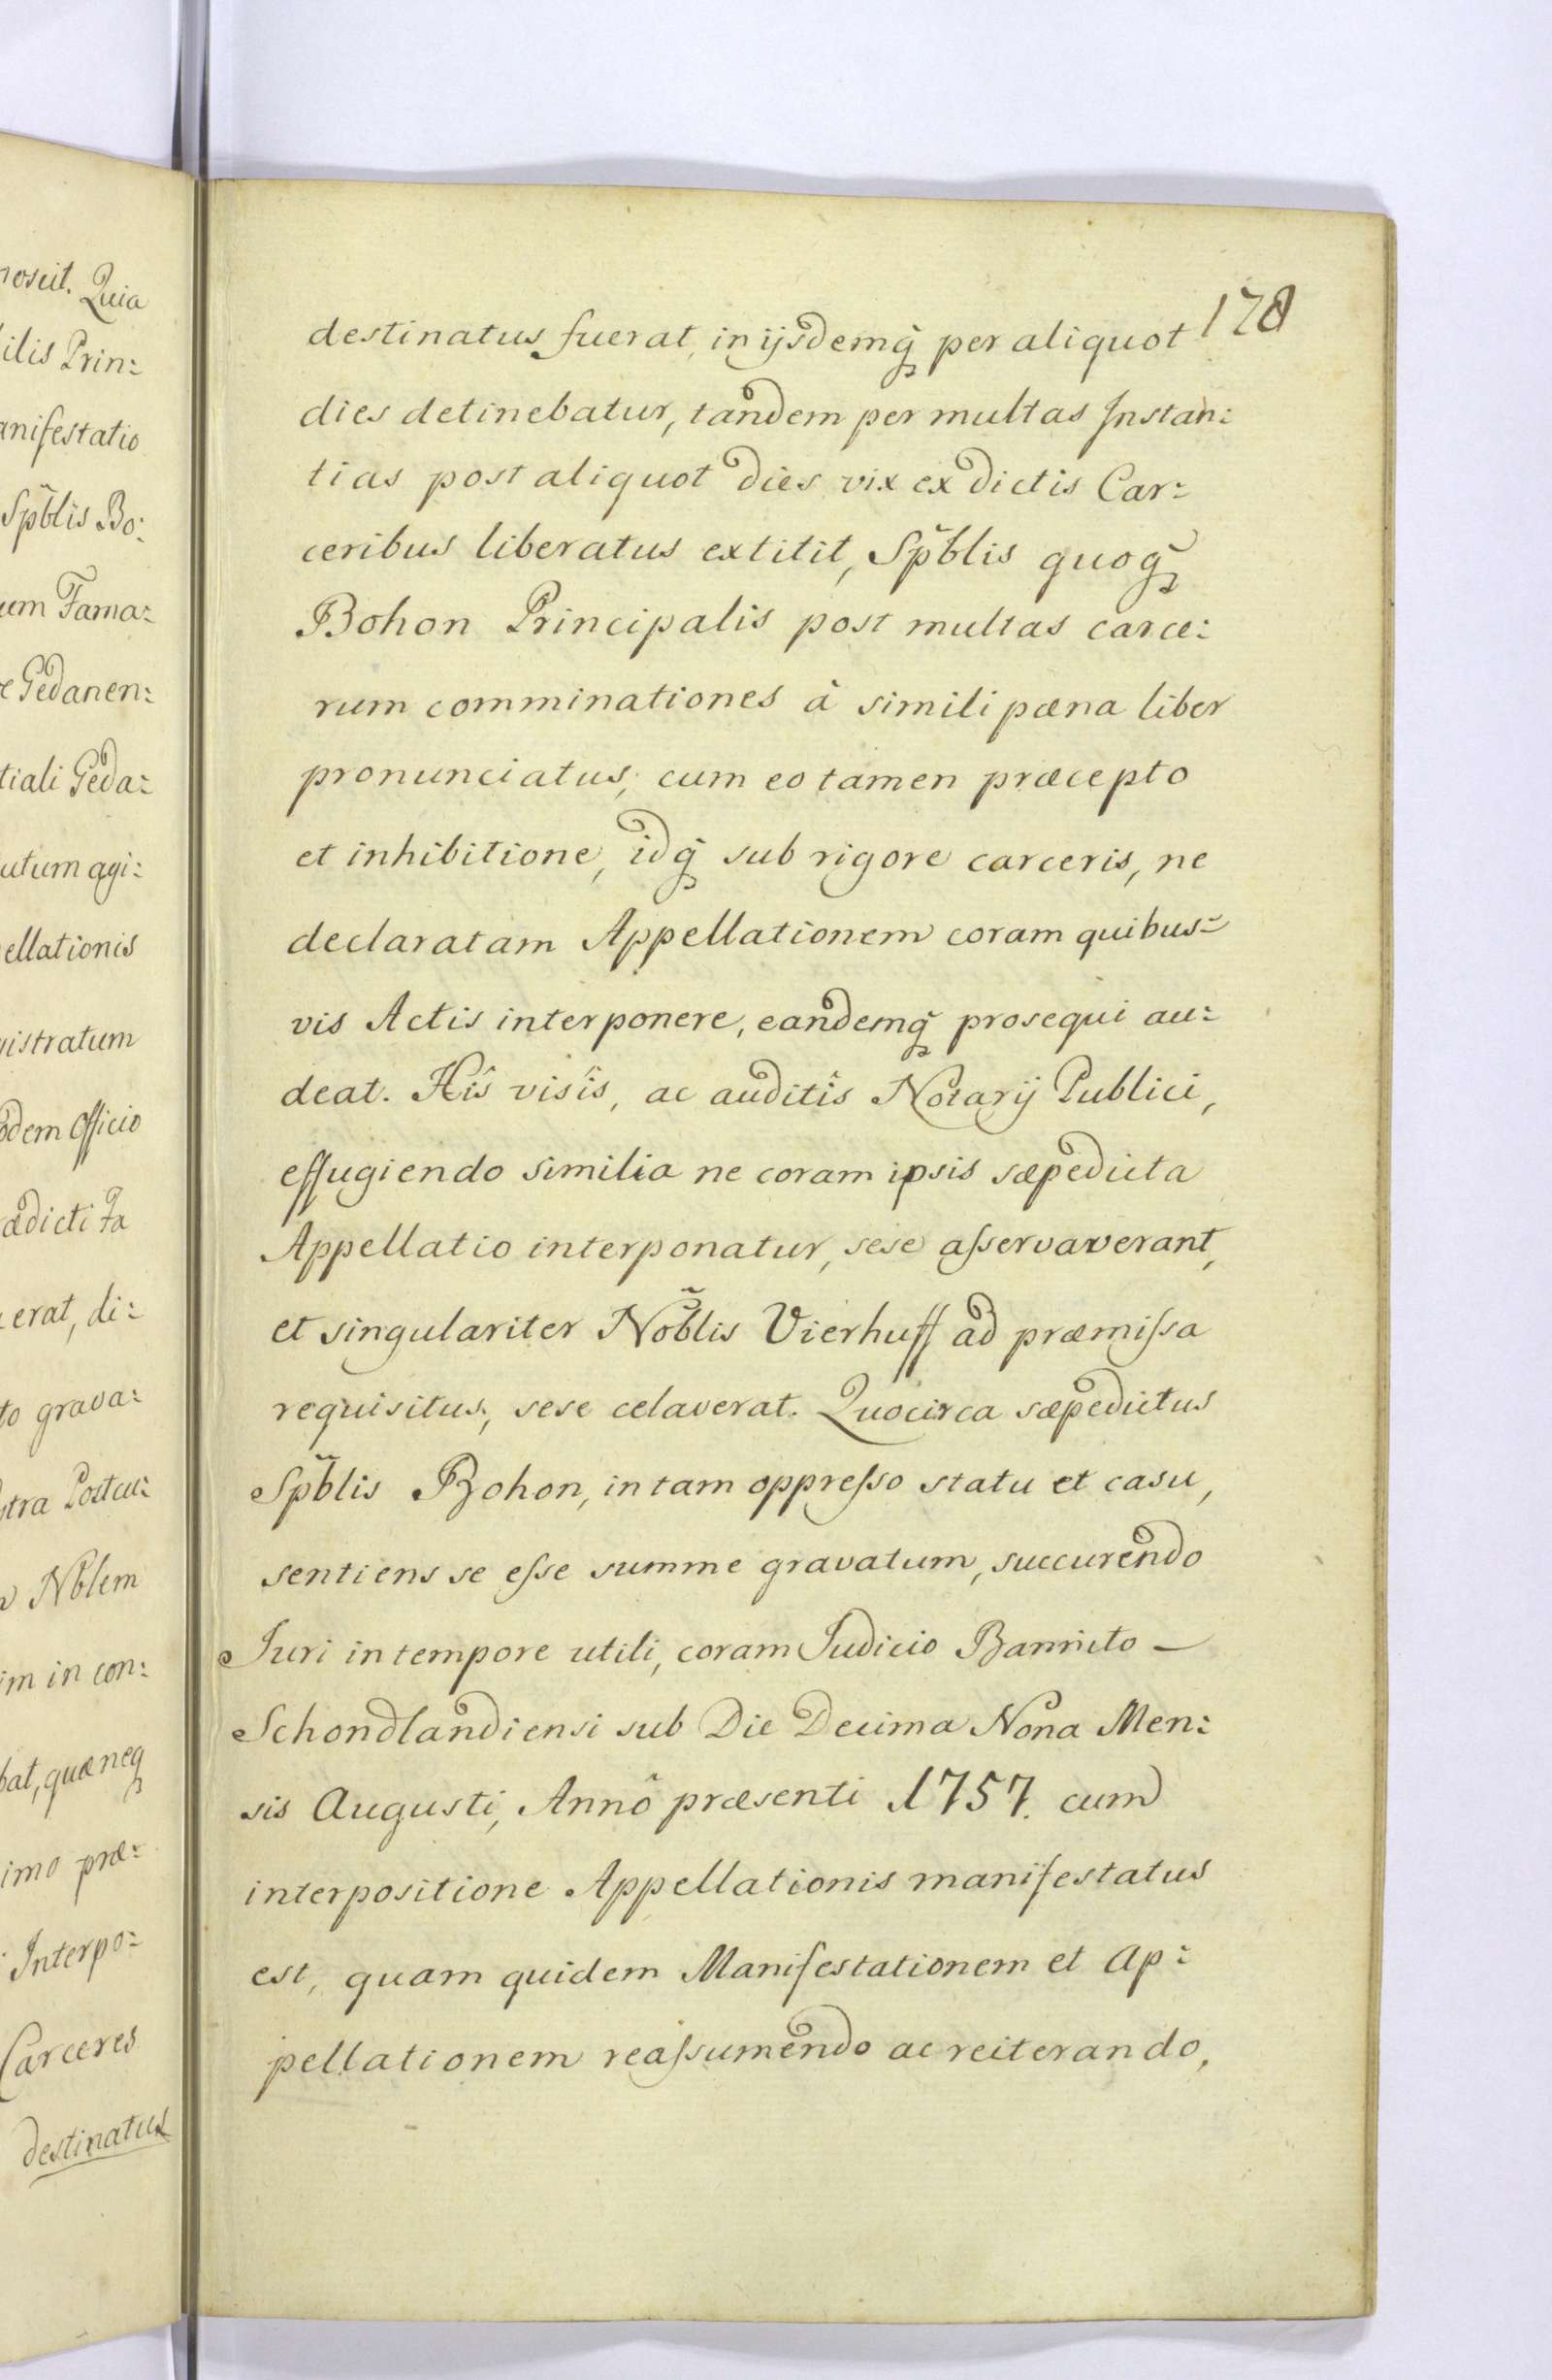 noscit. Quia
ilis Prin:
anifestatio
Spblis Bo:
um Fama:
e Gedanen:
tiali Geda:
utum agi:
ellationis
gistratum
odem Officio
ædicti Fa
erat, di:
to grava:
tra Postcu:
Nblem
im in con:
bat, quæ neq
imo præ:
Interpo:
Carceres
destinatus
178
destinatus fuerat, in ijsdemq̃ per aliquot
dies detinebatur, tandem per multas Instan:
tias post aliquot dies vix ex dictis Car:
ceribus liberatus extitit, Spb̃lis quoq̃
Bohon Principalis post multas carce:
rum comminationes à simili pæna liber
pronunciatus, cum eo tamen præcepto
et inhibitione, idq̃ sub rigore carceris, ne
declaratam Appellationem coram quibus:
vis Actis interponere, eandemq̃ prosequi au:
deat. Hîs visîs, ac auditîs Notarij Publici,
effugiendo similia ne coram ipsis sæpedicta
Appellatio interponatur, sese aſservaverant,
et singulariter Nob̃lis Vierhuff ad præmiſsa
requisitus, sese celaverat. Quocirca sæpedictus
Spb̃lis Bohon, in tam oppreſso statu et casu,
sentiens se eſse summe gravatum, succurendo
Juri in tempore utili, coram Judicio Bannito –
Schondlandiensi sub Die Decima Nona Men:
sis Augusti, Annô præsenti 1757. cum
interpositione Appellationis manifestatus
est, quam quidem Manifestationem et Ap:
pellationem reaſsumendo ac reiterando,